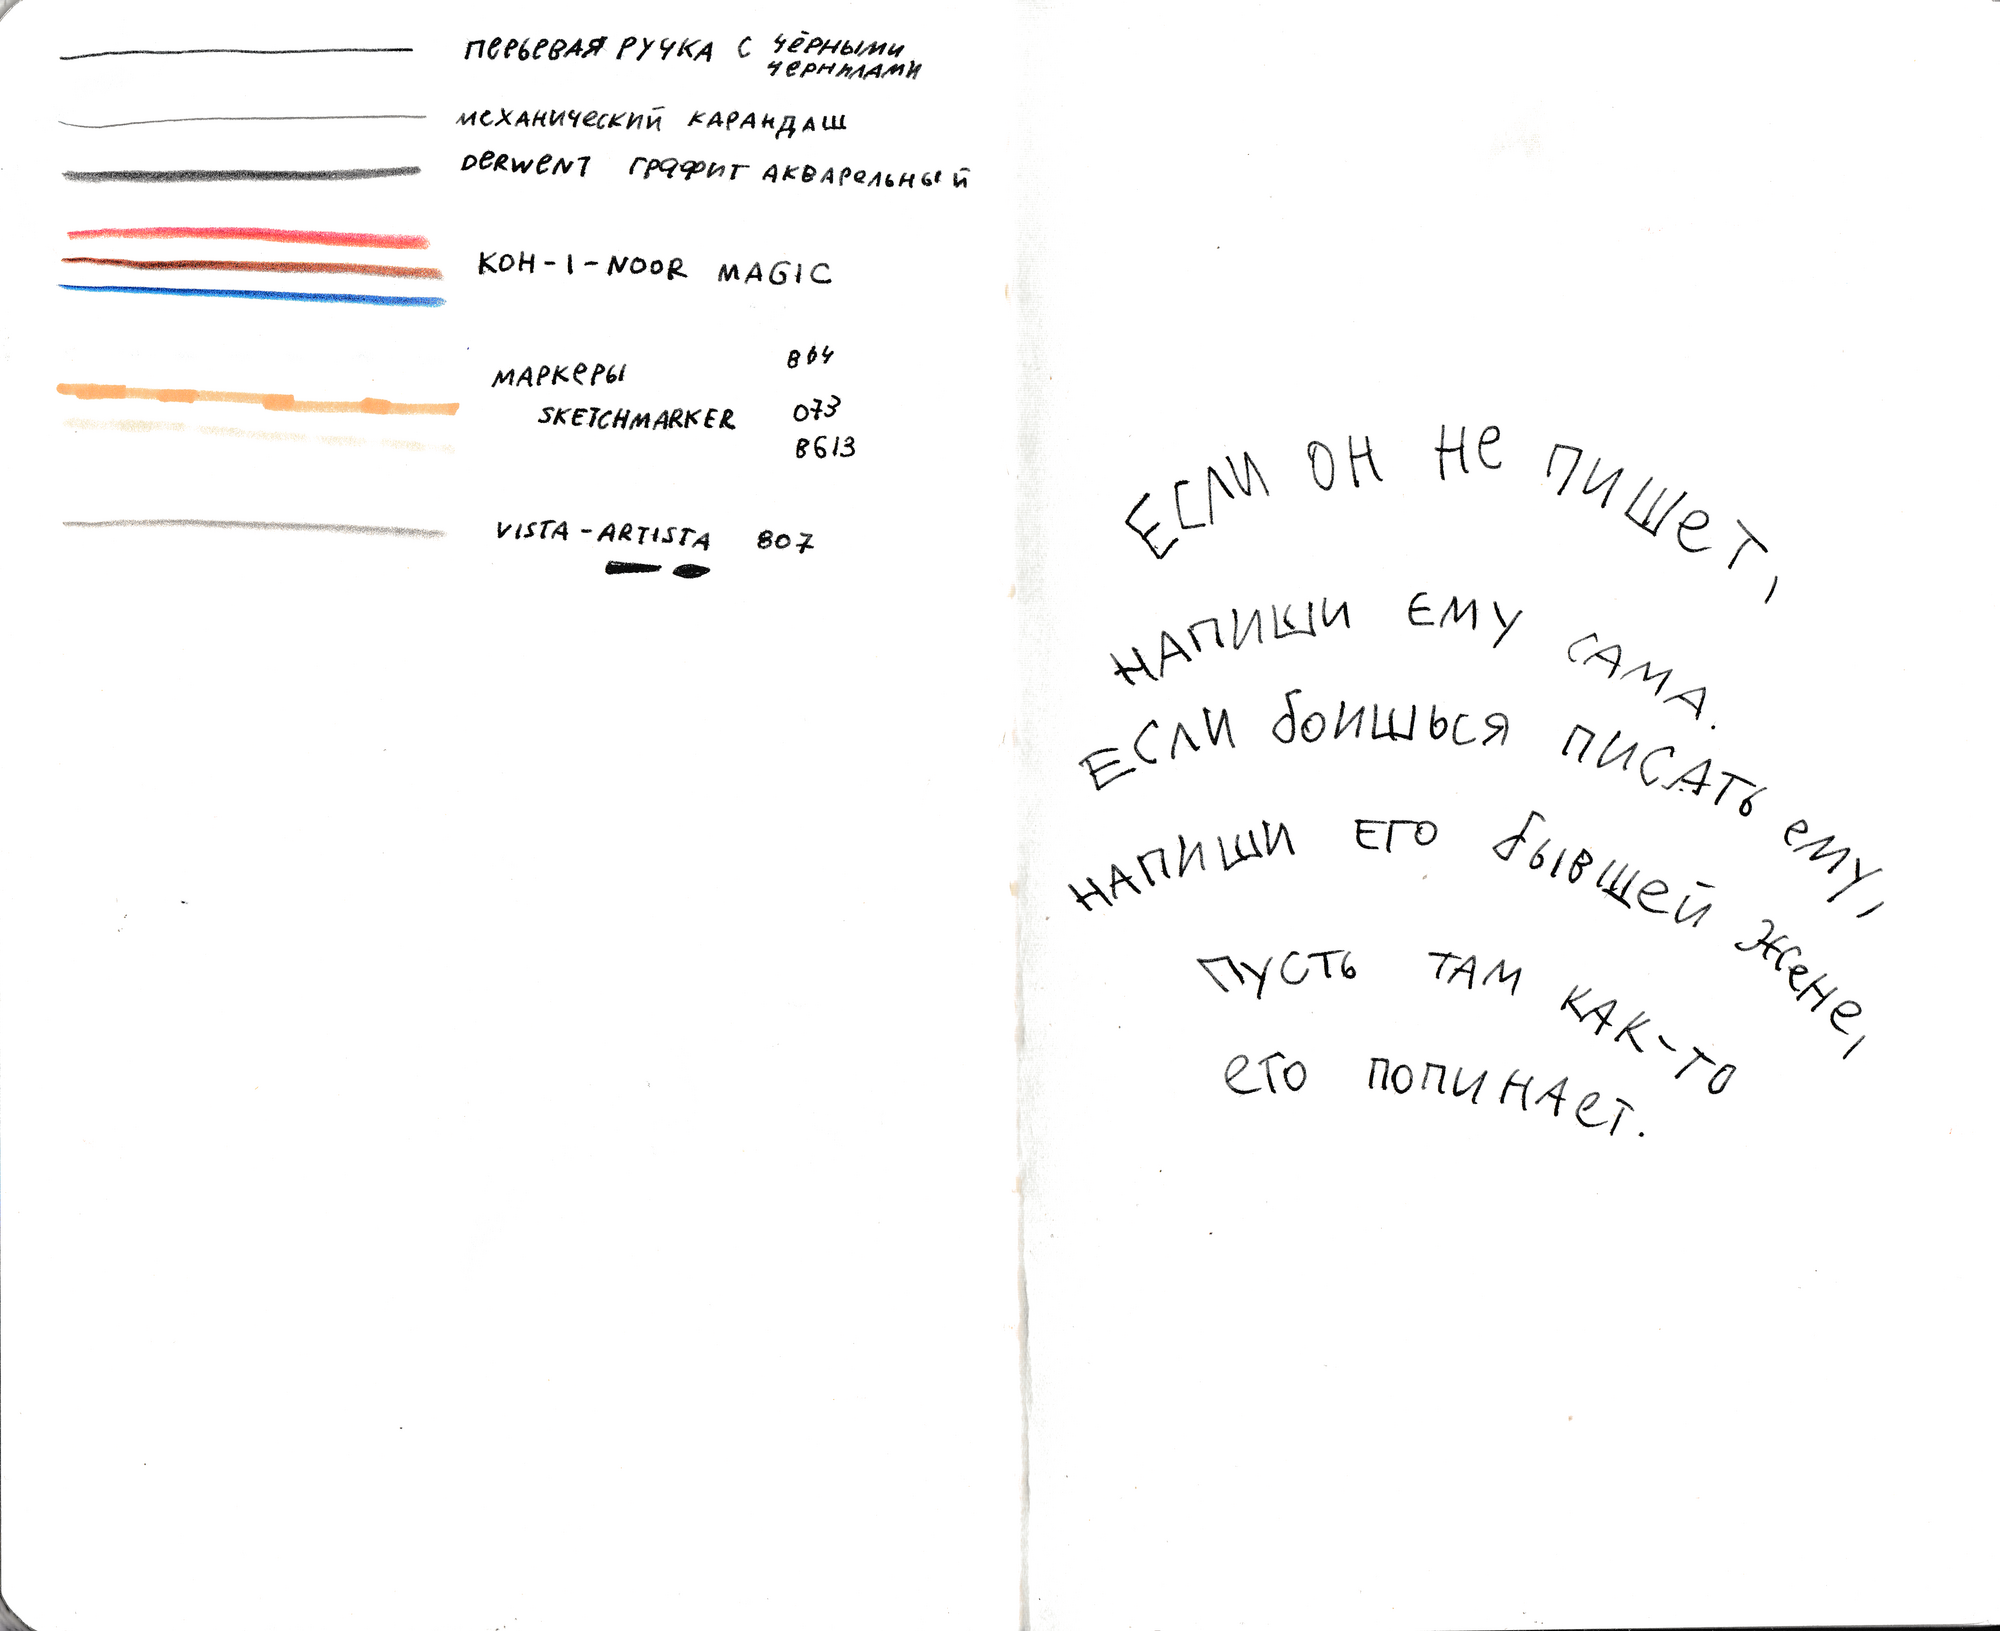 перьевая ручка с чёрными
чернилами
механический карандаш
Derwent графит акварельный
KOH-I-NOOR MAGIC
маркеры B64
SKETCHMARKER 073
BG13
VISTA-ARTISTA 807
Если он не пишет,
напиши ему сама.
Если боишься писать ему,
напиши его бывшей жене,
пусть там как-то
его попинает.